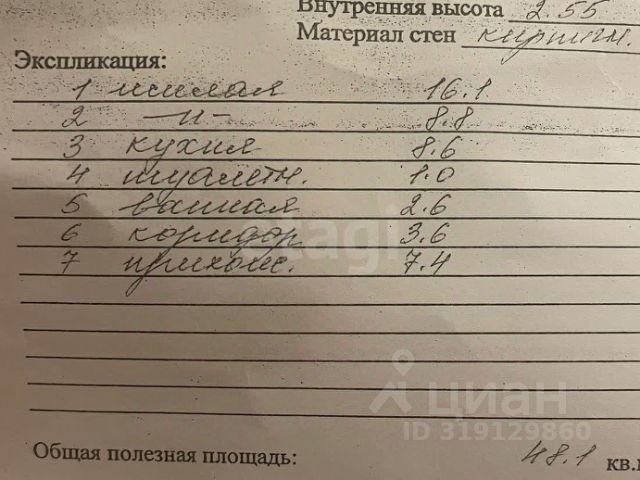 Внутренняя высота 2.55
Материал стен кирпичн.
Экспликация:
1 жилая 16.1
2 —и— 8.8
3 кухня 8.6
4 туалетн. 1.0
5 ванная 2.6
6 коридор 3.6
7 прихож. 7.4
etagi
циан
ID 319129860
Общая полезная площадь: 48.1 кв.